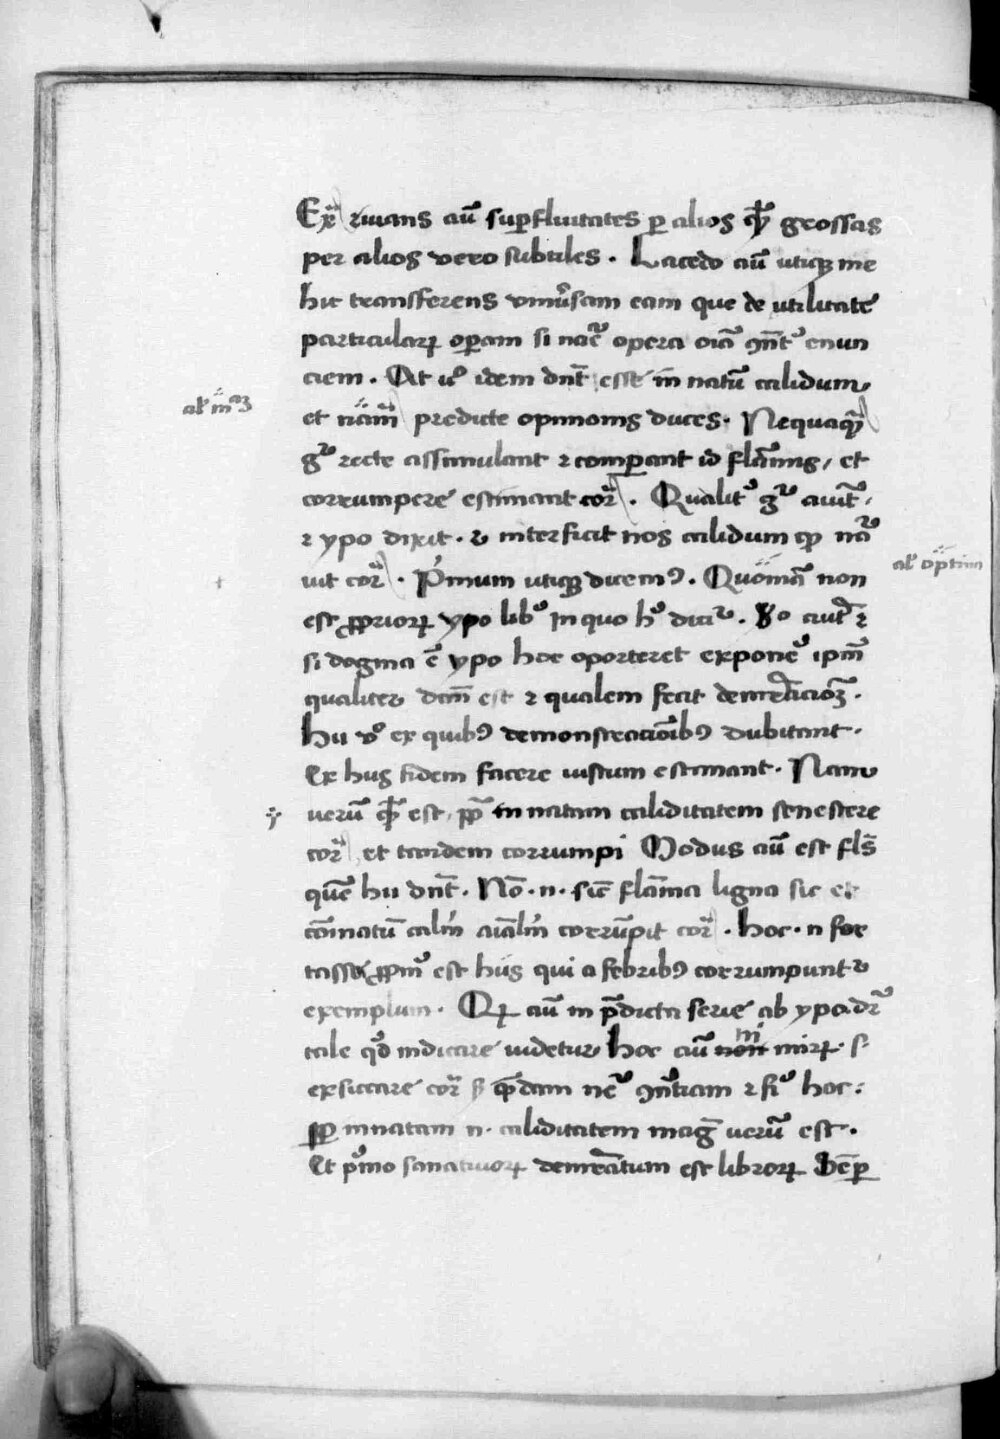 Exr̃ riuans aũ suꝑfluitates ꝑ alios qͥ̃ grossas
per alios vero subtiles . Lacedo aũ utiqꝫ me
hic transferens vniũsam eam que de utilitate
particularꝝ oꝑam si nãe opera oĩa ꝯñt enun
ciem . At idem dñt esse in natũ calidum
al̃
et nãm predicte opinionis duces . Nequaqͣ̃
gͦ recte assimulant ⁊ comꝑant id flãmis , et
corrumpere estimant cor̃ . Qualit᷑ gͦ aiũt .
⁊ ypo dixit . ⁊ interficit nos calidum ꝙ nã
al̃ optim
uit cor̃ . Pͥmum utiqꝫ dicemꝰ . Quoniã non
est ꝓpriorꝝ ypo lib᷑ in quo hͦ dicit᷑ . aũt ⁊
si dogma ẽ ypo hoc oporteret expone᷑ ipm̃
qualiter dc̃m est ⁊ qualem fecit demr̃acionꝫ .
hii vͦ ex quibꝰ demonstracioibꝰ dubitant .
Ex hiis fidem facere iustum estimant . Nam
uerũ qͥ̃ est , ꝓp̃ in natam caliditatem senescere
cor̃ , et tandem corrumpi Modus aũ est fl̃s
quẽ hii dñt . Nõ . n . sic̃ flãma ligna sic et
cõinatũ corrũpit cor̃ . hoc . n for
tasse ꝓp̃m est hiis qui a febribꝰ corrumpunt᷑
exemplum . Qꝝ aũ in p̃dicta serie ab ypo . dr̃
tale qd̃ indicare uidetur hoc aũ non mirꝝ . si
ni
exsiccare cor̃ qͣ̃dam ne᷑ ꝯñtiam ⁊ fi᷑ hoc :
ꝓp innatam n . caliditatem mag̃ uerũ est .
Et pͥmo sanatiuorꝝ demr̃atum est librorꝝ